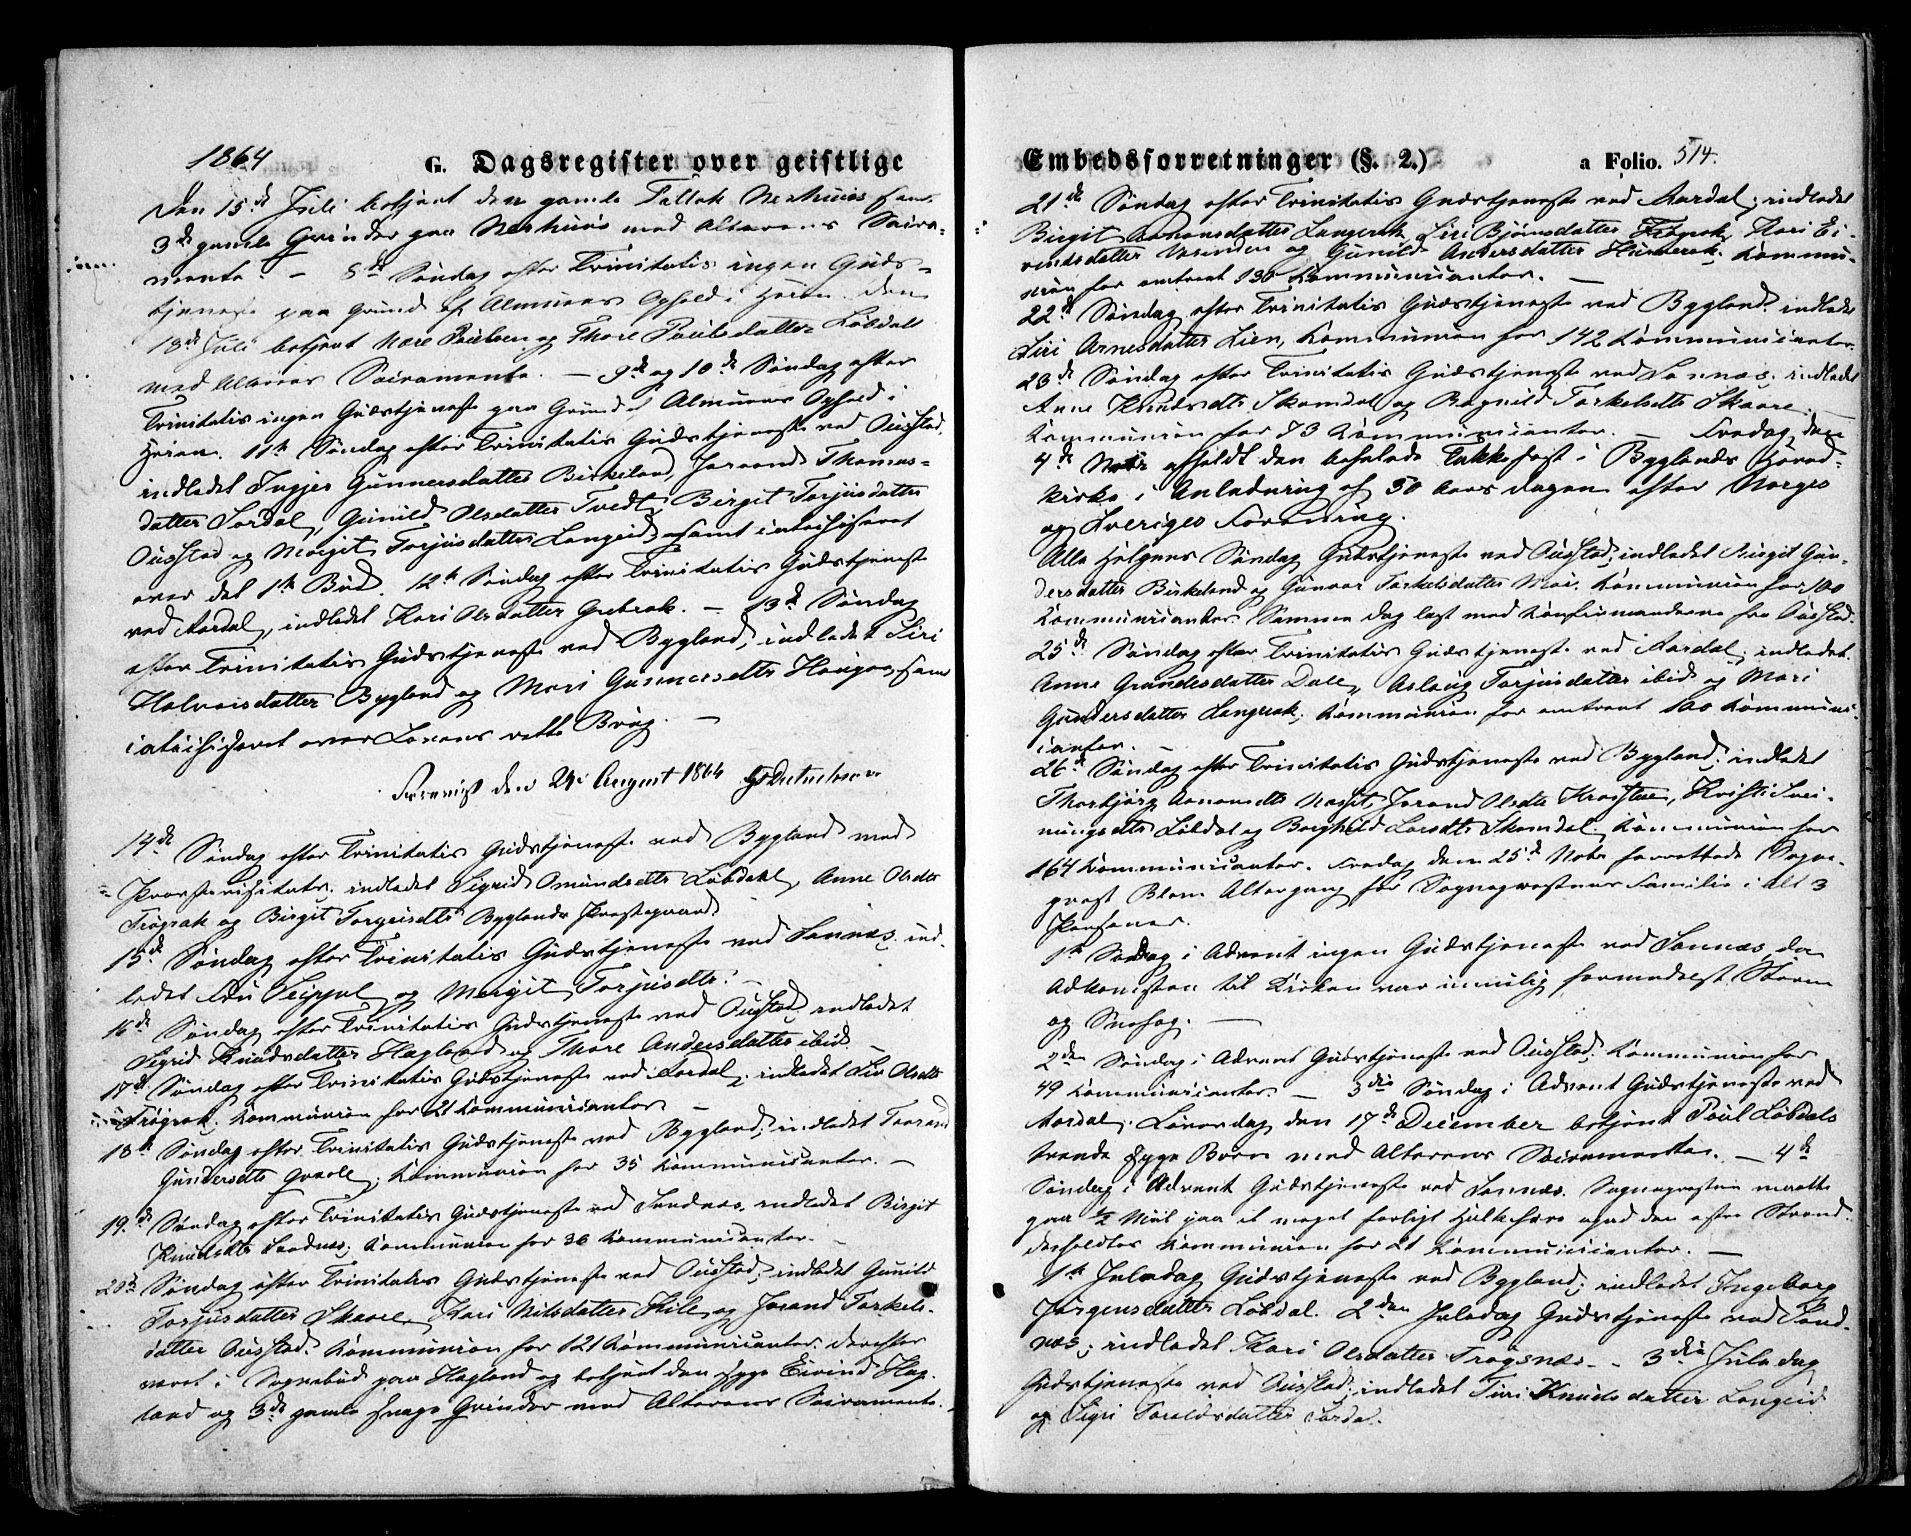 1864
G. Dagsregister over geistlige
Den 15de Juli betjent den gamle Tallak Neshuus samt
3de gamle Qvinder paa Neshuus med Alterens Sacra-
mente. – 8de Søndag efter Trinitatis ingen Guds-
tjeneste paa Grund af Almuens Ophold i Heien. Den
18de Juli betjent Poulsen og Thore Poulsdatter Løbdal
med Alterens Sacramente. – 9de og 10de Søndag efter
Trinitatis ingen Gudstjeneste paa Grund af Almuens Ophold i
Heien. 11te Søndag efter Trinitatis Gudstjeneste ved Ousstad,
indledet Gunnersdatter Birkeland, Joraand Thomas-
datter Sordal, Gunild Olsdatter Tvedt, Birgit Torjusdatter
Ousstad og Margit Torjusdatter Langeid, samt catechiseret
over det 1te Bud. 12te Søndag efter Trinitatis Gudstjeneste
ved Aardal, indledet Kari Olsdatter Grebrok. – 13de Søndag
efter Trinitatis Gudstjeneste ved Bygland, indledet Siri
Halvorsdatter Bygland og Mari Gunnersdtr Haugaas, samt
catechiseret over Lovens rette Brug. –
den 24de August 1864
14de Søndag efter Trinitatis Gudstjeneste ved Bygland med
Provstevisitats. indledet Sigrid Omundsdtr Løbdahl, Anne Olsdtr
Frøyrak og Birgit Torgeisdtr Byglands Præstegaard.
15de Søndag efter Trinitatis Gudstjeneste ved Sannæs, ind-
ledet Fru Seippel og Margit Torjusdtr. –
16de Søndag efter Trinitatis Gudstjeneste ved Ousstad, indledet
Sigrid Knudsdatter Hagland og Thore Andersdatter ibid. –
17de Søndag efter Trinitatis Gudstjeneste ved Aardal, indledet Liv Olsdtr
Frøyrak. Kommunion for 21 Kommunicanter. –
18de Søndag efter Trinitatis Gudstjeneste ved Bygland, indledet
Gundersdtr; Kommunion for 35 Kommunicanter. –
19de Søndag efter Trinitatis Gudstjeneste ved Sandnes, indledet Birgit
Knudsdtr Sandnes; Kommunion for 36 Kommunicanter. –
20de Søndag efter Trinitatis Gudstjeneste ved Ousstad, indledet Gunild
Torjusdatter Skaare, Kari Nilsdatter Hile og Jorand Torkels-
datter Ousstad. Kommunion for 121 Kommunicanter. Derefter
været i Sognebud paa Hagland og betjent den syge Eivind Hag-
land og 3de gamle svage Qvinder med Alterens Sacramente. –
Embedsforretninger (§. 2.)
a Folio. 514.
21de Søndag efter Trinitatis Gudstjeneste ved Aardal; indledet
Birgit Aanonsdatter Langerak, Siri Bjørnsdatter Frøyrak, Kari Ei-
vindsdatter og Gunild Andersdatter. Kommu-
nion for omtrent 130 Kommunicanter. –
22de Søndag efter Trinitatis Gudstjeneste ved Bygland. indledet
Siri Arnesdatter Lien, Kommunion for 142 Kommunicanter.
23de Søndag efter Trinitatis Gudstjeneste ved Sannæs; indledet
Anne Knudsdtr Skomdal og Ragnild Torkelsdtr Skaare. –
Kommunion for 73 Kommunicanter. – Fredag den
4de Novbr afholdt den befalede Takkefest i Byglands Hoved-
kirke i Anledning af 50 Aars dagen efter Norges
og Sveriges Forening.
Alle Helgens Søndag Gudstjeneste ved Ousstad; indledet Birgit Gun-
dersdatter Birkeland og Gunvor Torkelsdatter Moi. Kommunion for 100
Kommunicanter. Samme Dag læst med Konfirmanderne fra Ousstad.
25de Søndag efter Trinitatis Gudstjeneste ved Aardal; indledet
Anne Gundersdatter Dale, Aslaug Torjusdatter ibid og Mari
Gundersdatter Langerak; Kommunion for omtrent 100 Kommuni-
canter. –
26de Søndag efter Trinitatis Gudstjeneste ved Bygland; indledet
Thorbjørg Aanonsdtr, Jorand Olsdtr, Kristi Svei-
nungsdtr Løbdal og Borghild Larsdtr Skomdal. Kommunion for
164 Kommunicanter. Fredag den 25de Novbr forrettede Sogne-
præst Blom Altergang for Sognepræstens Familie i Alt 3
Personer.
1te Søndag i Advent ingen Gudstjeneste ved Sannæs, da
Adkomsten til Kirken var umulig formedelst Storm
og Snefog. –
2den Søndag i Advent Gudstjeneste ved Ousstad. Kommunion for
49 Kommunicanter. – 3die Søndag i Advent Gudstjeneste ved
Aardal. Løverdag den 17de December betjent Poul Løbdals
trende syge Børn med Alterens Sacramenter. – 4de
Søndag i Advent Gudstjeneste ved Sannæs. Sognepræsten maatte
gaa ½ Miil paa et meget farligt Holkeføre opad den østre Strand.
desholdtes Kommunion for 21 Kommunicanter. –
1te Juledag Gudstjeneste ved Bygland; indledet Ingeborg
Jørgensdatter Løbdal. 2den Juledag Gudstjeneste ved Sand-
næs; indledet Kari Olsdatter Frøysnæs. – 3die Juledag
Gudstjeneste ved Ousstad; indledet Siri Knudsdatter Langeid
og Sigri Taraldsdatter Sordal.